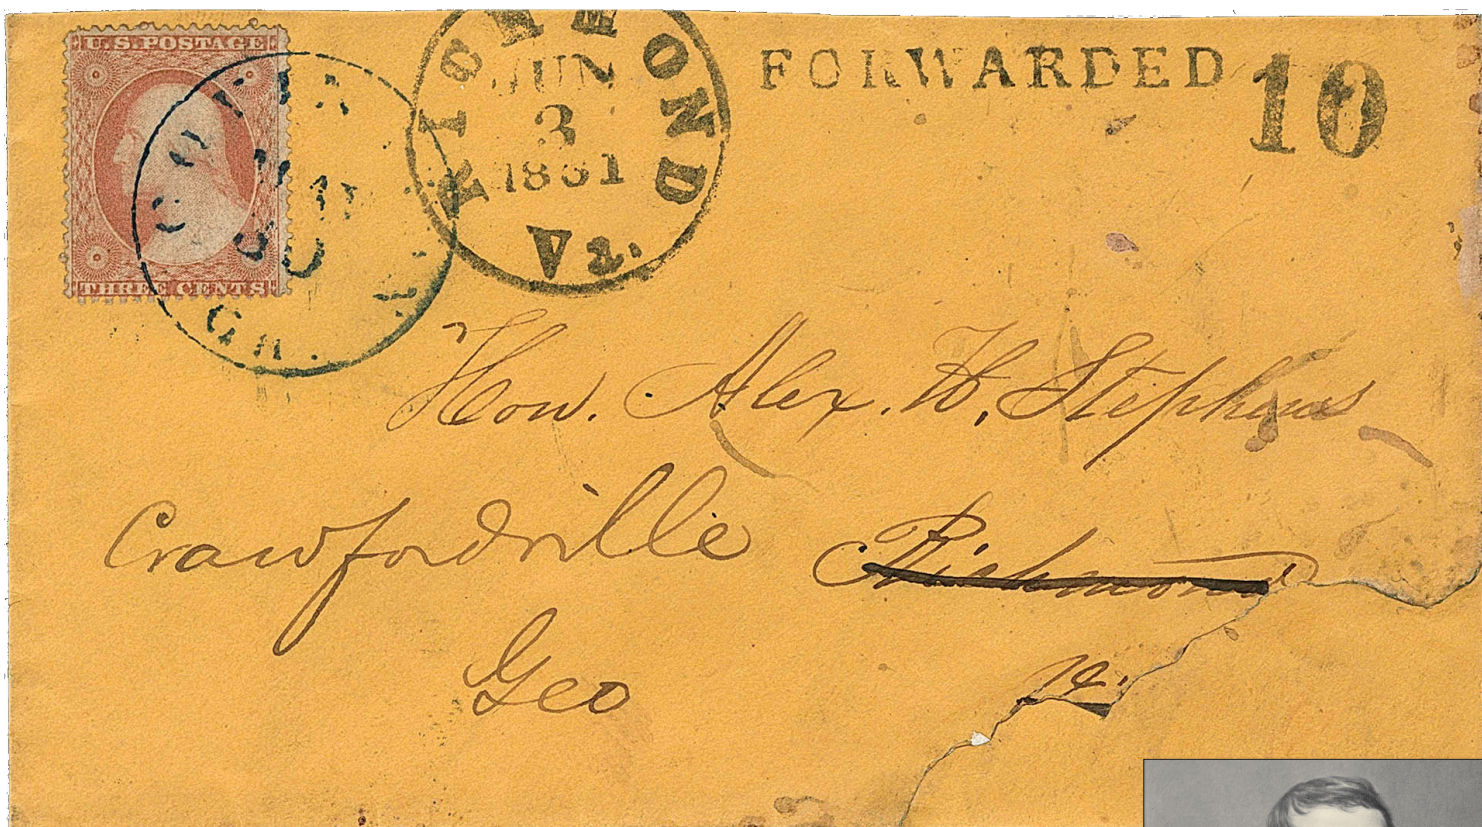 U.S. POSTAGE
THREE CENTS
RICHMOND
JUN
3
1861
Va.
FORWARDED 10
Hon. Alex. H. Stephens
Crawfordville Richmond
Geo Va.